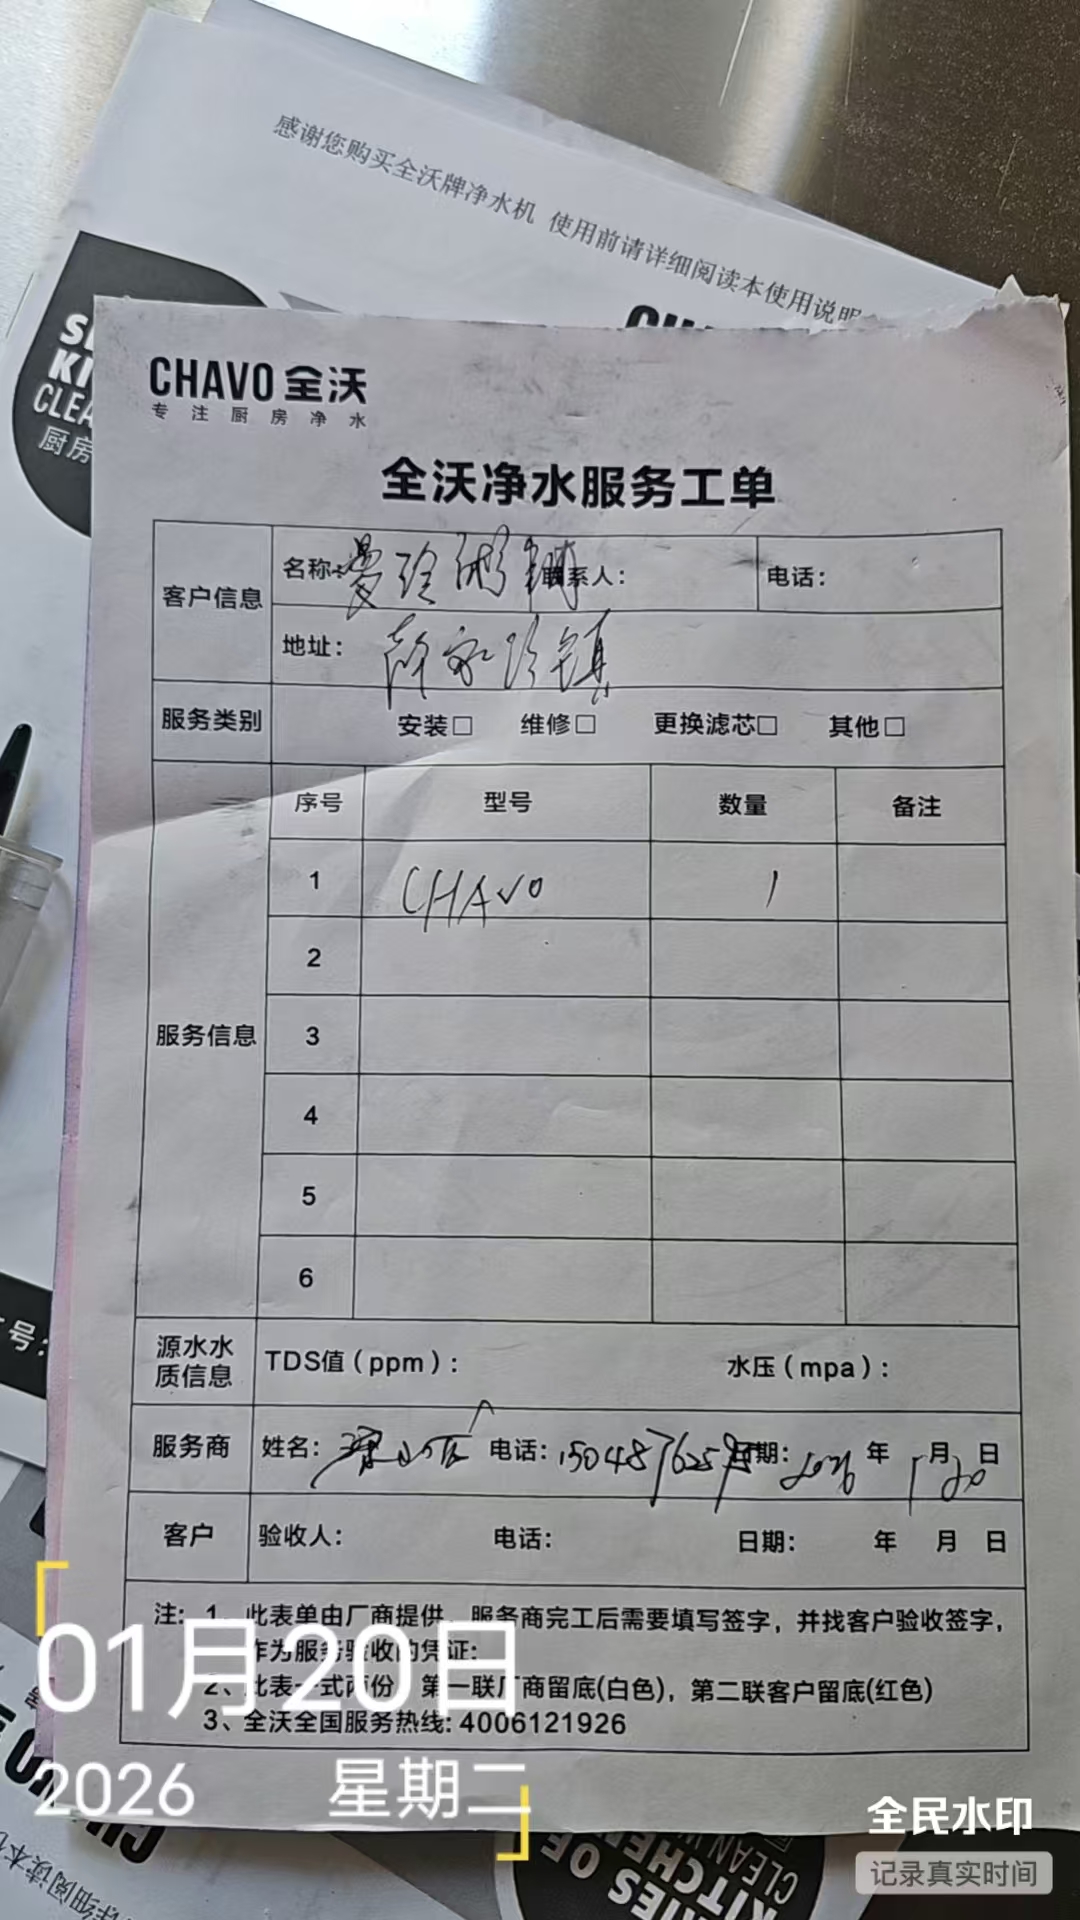 感谢您购买全沃牌净水机 使用前请详细阅读本使用说明
CHAVO 全沃
专注厨房净水
全沃净水服务工单
客户信息
名称: 联系人: 电话:
地址:
服务类别 安装□ 维修□ 更换滤芯□ 其他□
服务信息
序号 型号 数量 备注
1 CHAVO 1
2
3
4
5
6
源水水质信息 TDS值(ppm): 水压(mpa):
服务商 姓名: 电话: 日期: 2026 年 1 月 20 日
客户 验收人: 电话: 日期: 年 月 日
注: 1、此表单由厂商提供，服务商完工后需要填写签字，并找客户验收签字，
作为服务验收的凭证;
2、此表一式两份，第一联厂商留底(白色)，第二联客户留底(红色)
3、全沃全国服务热线: 4006121926
01月20日
2026 星期二
全民水印
记录真实时间